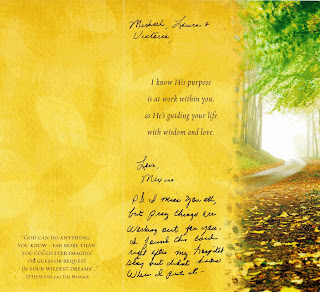 Michael, Laura &
Victoria,
I know His purpose
is at work within you,
as He's guiding your life
with wisdom and love.
Love,
P.S. I miss you all,
but pray things are
working out for you.
I found this card
right after my hospital
stay but didn't know
where I put it -
"GOD CAN DO ANYTHING,
YOU KNOW – FAR MORE THAN
YOU COULD EVER IMAGINE
OR GUESS OR REQUEST
IN YOUR WILDEST DREAMS!"
EPHESIANS 3:20 THE MESSAGE